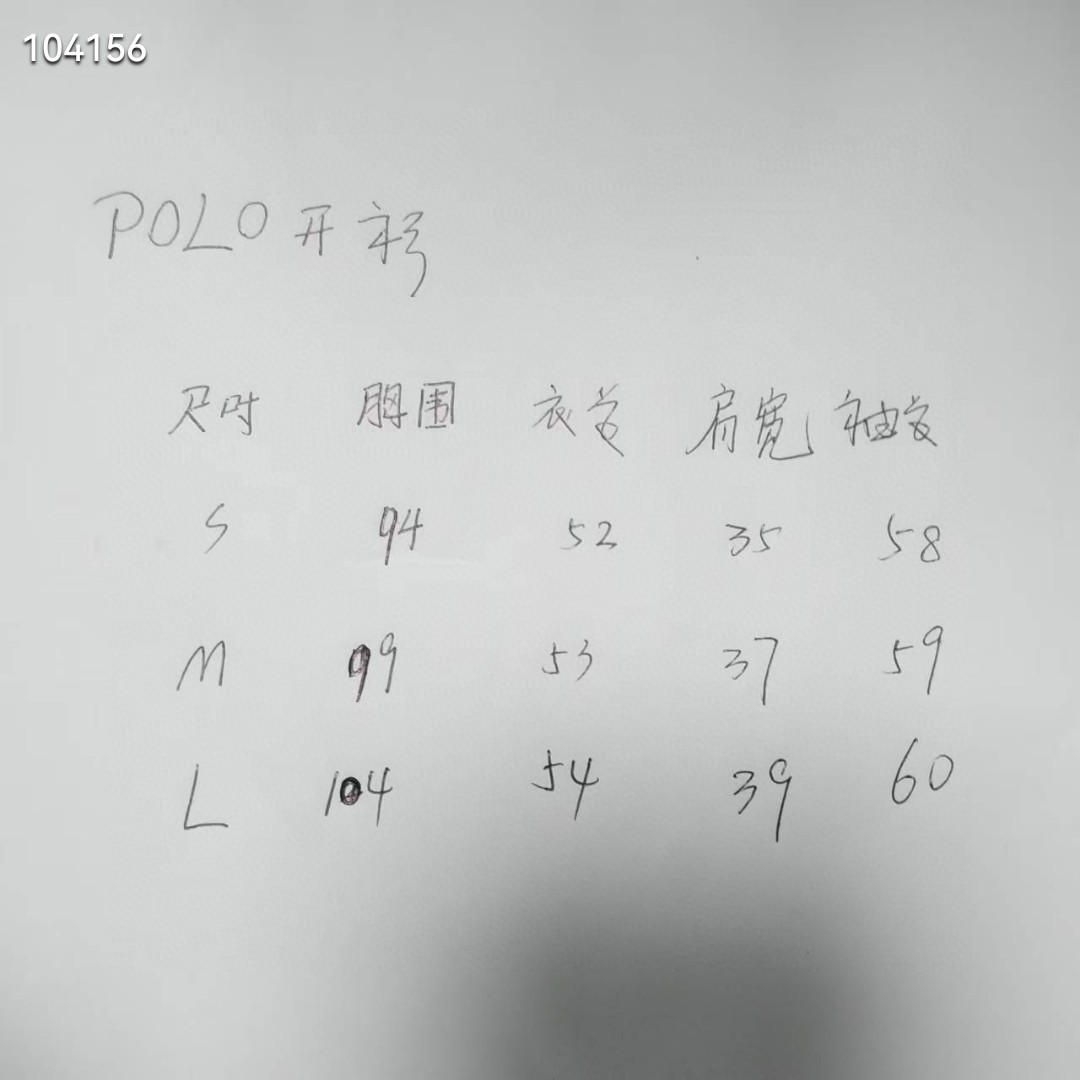 104156
POLO开衫
尺吋 胸围 衣长 肩宽 袖长
S 94 52 35 58
M 99 53 37 59
L 104 54 39 60